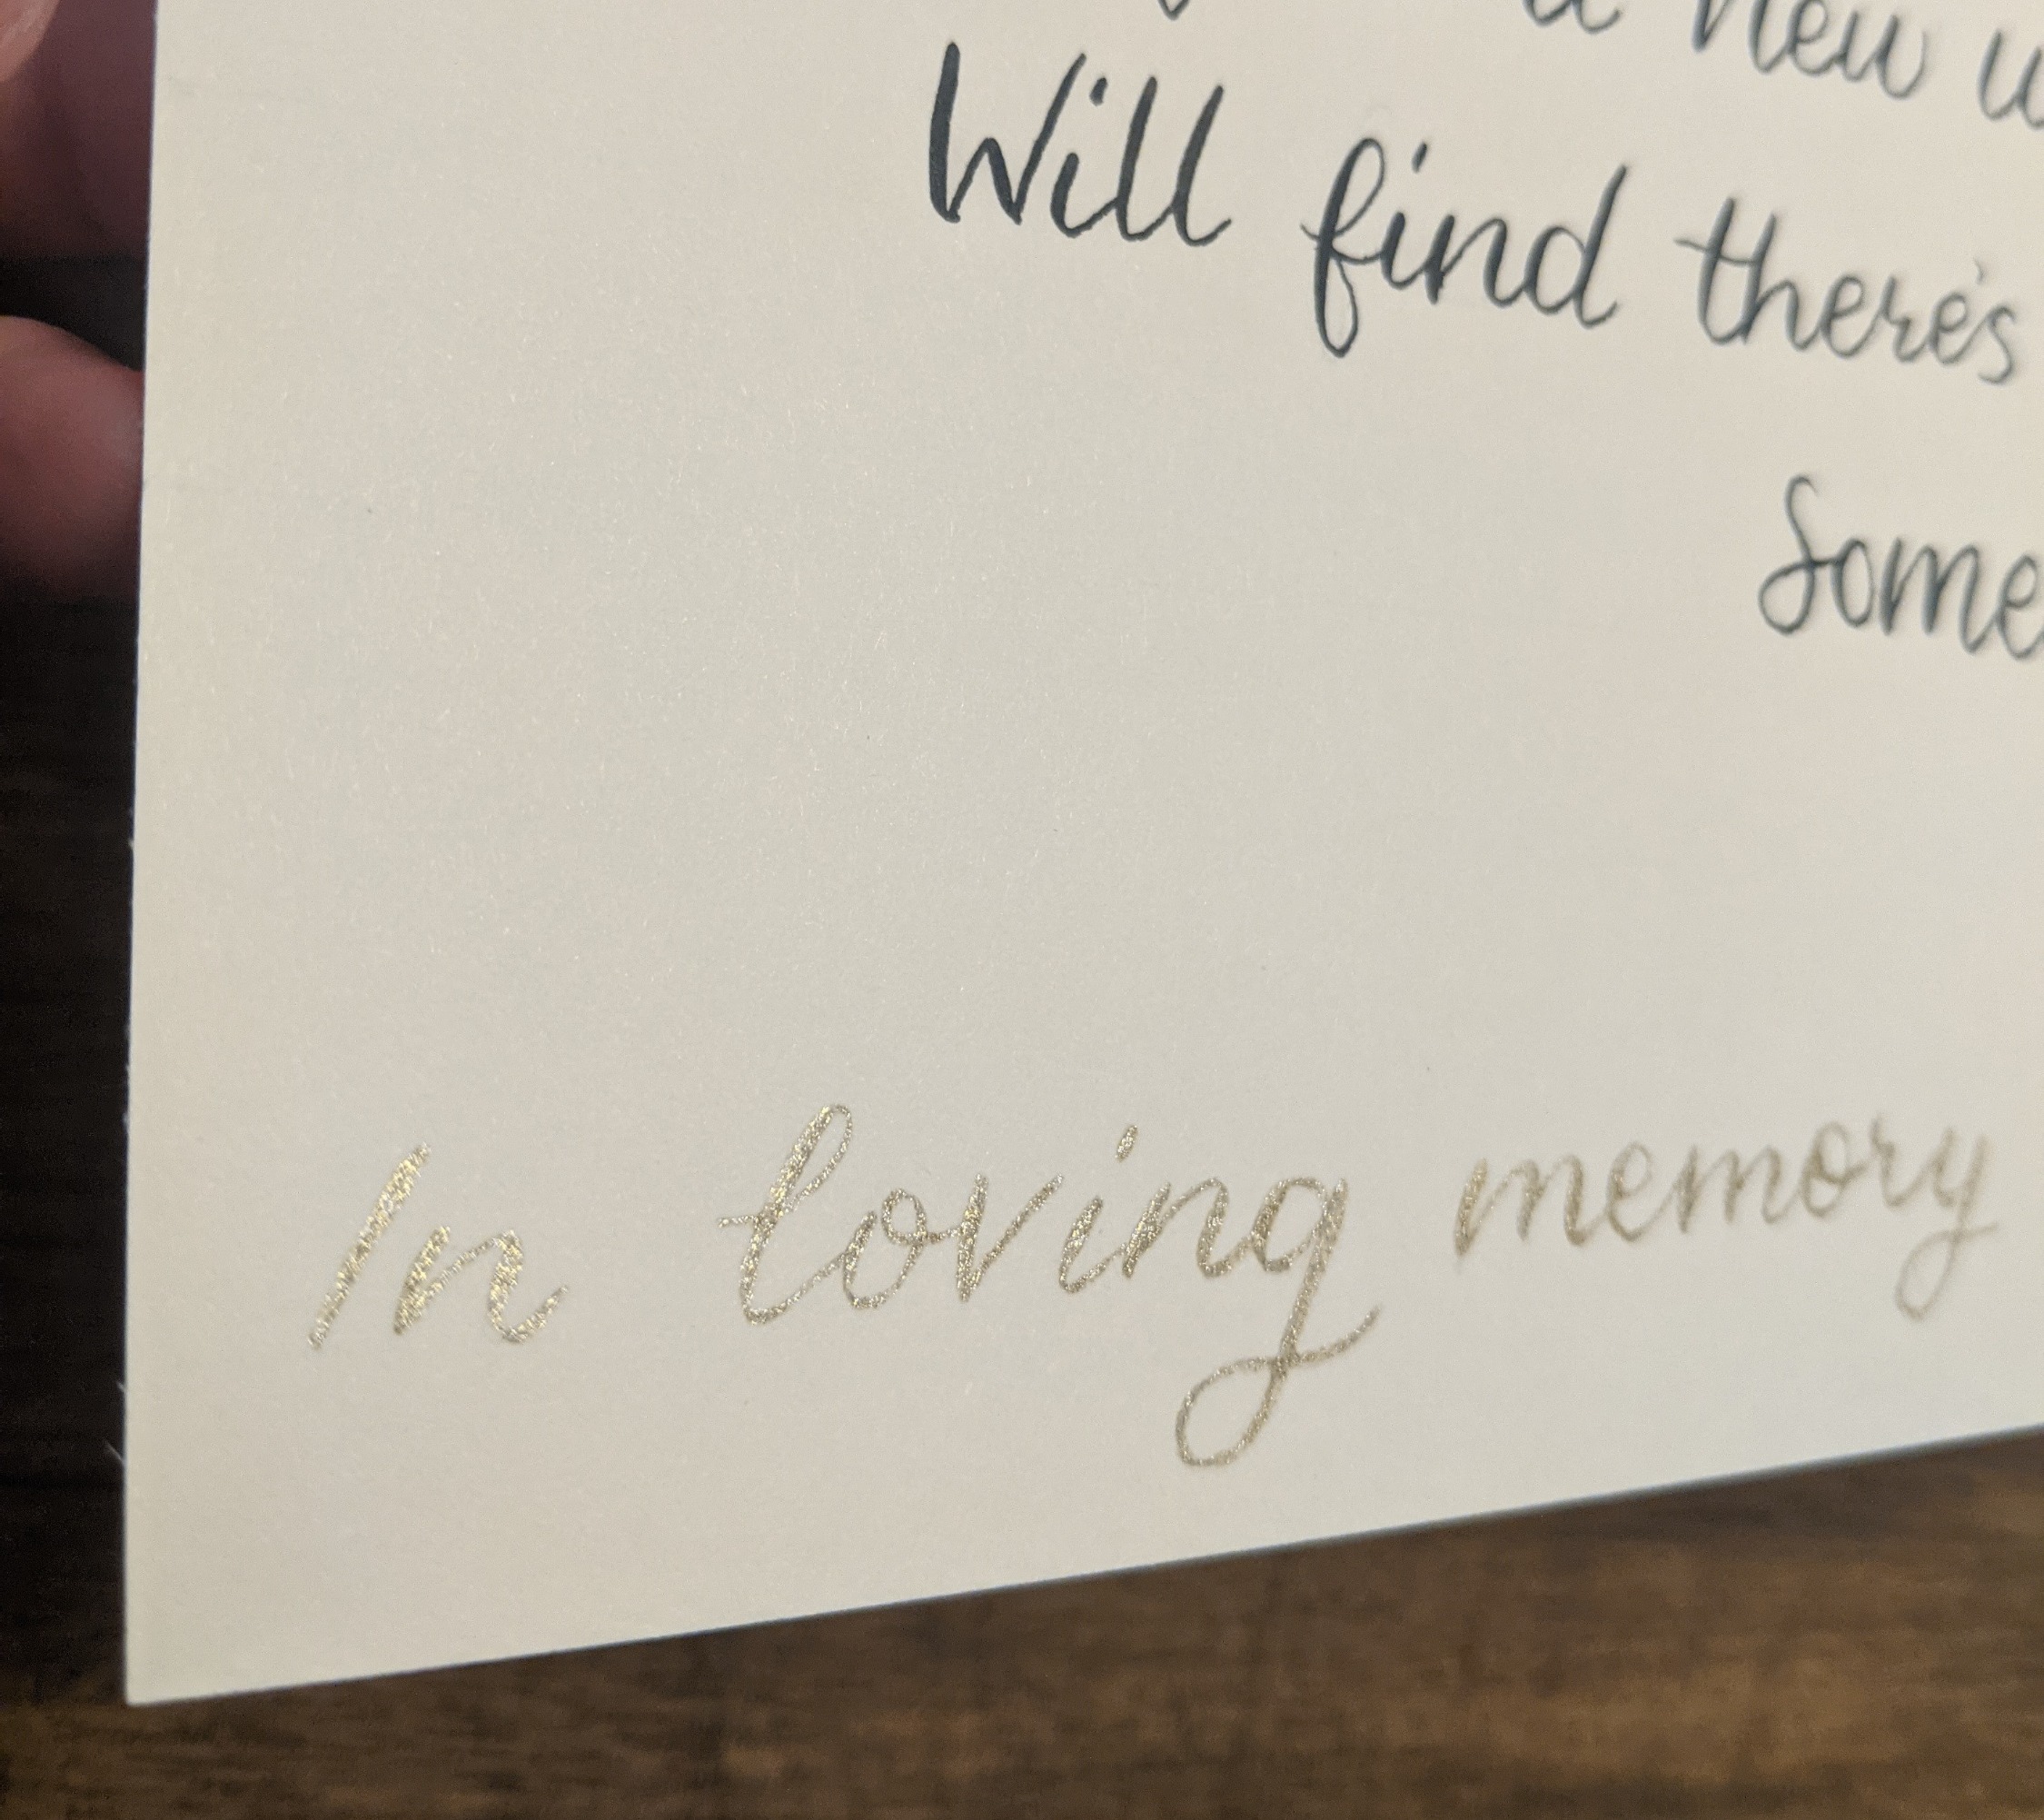 a new
Will find there's
Some
In loving memory